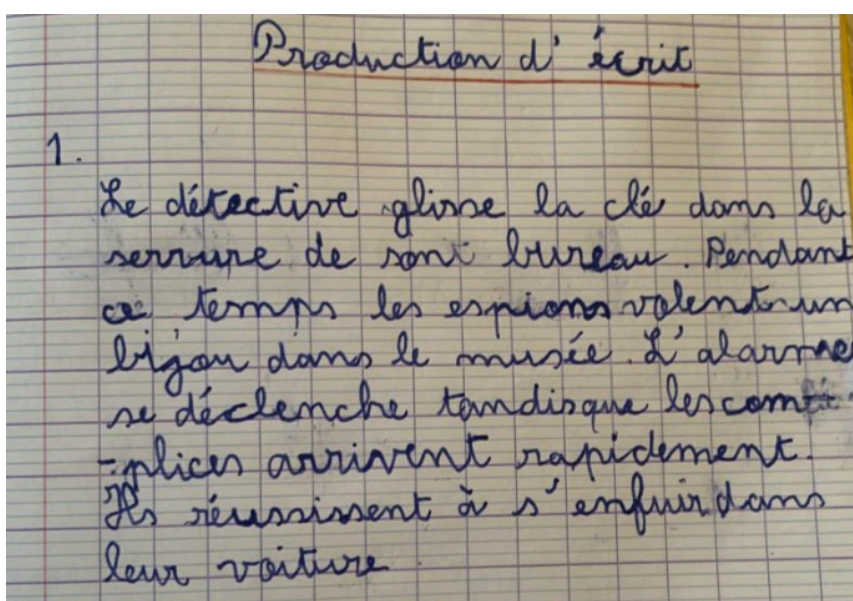 Production d'écrit
1.
Le détective glisse la clé dans la
serrure de sont bureau. Pendant
ce temps les espions volent un
bijou dans le musée. L'alarme
se déclenche tandisque les com
-plices arrivent rapidement.
Ils réussissent à s'enfuir dans
leur voiture.